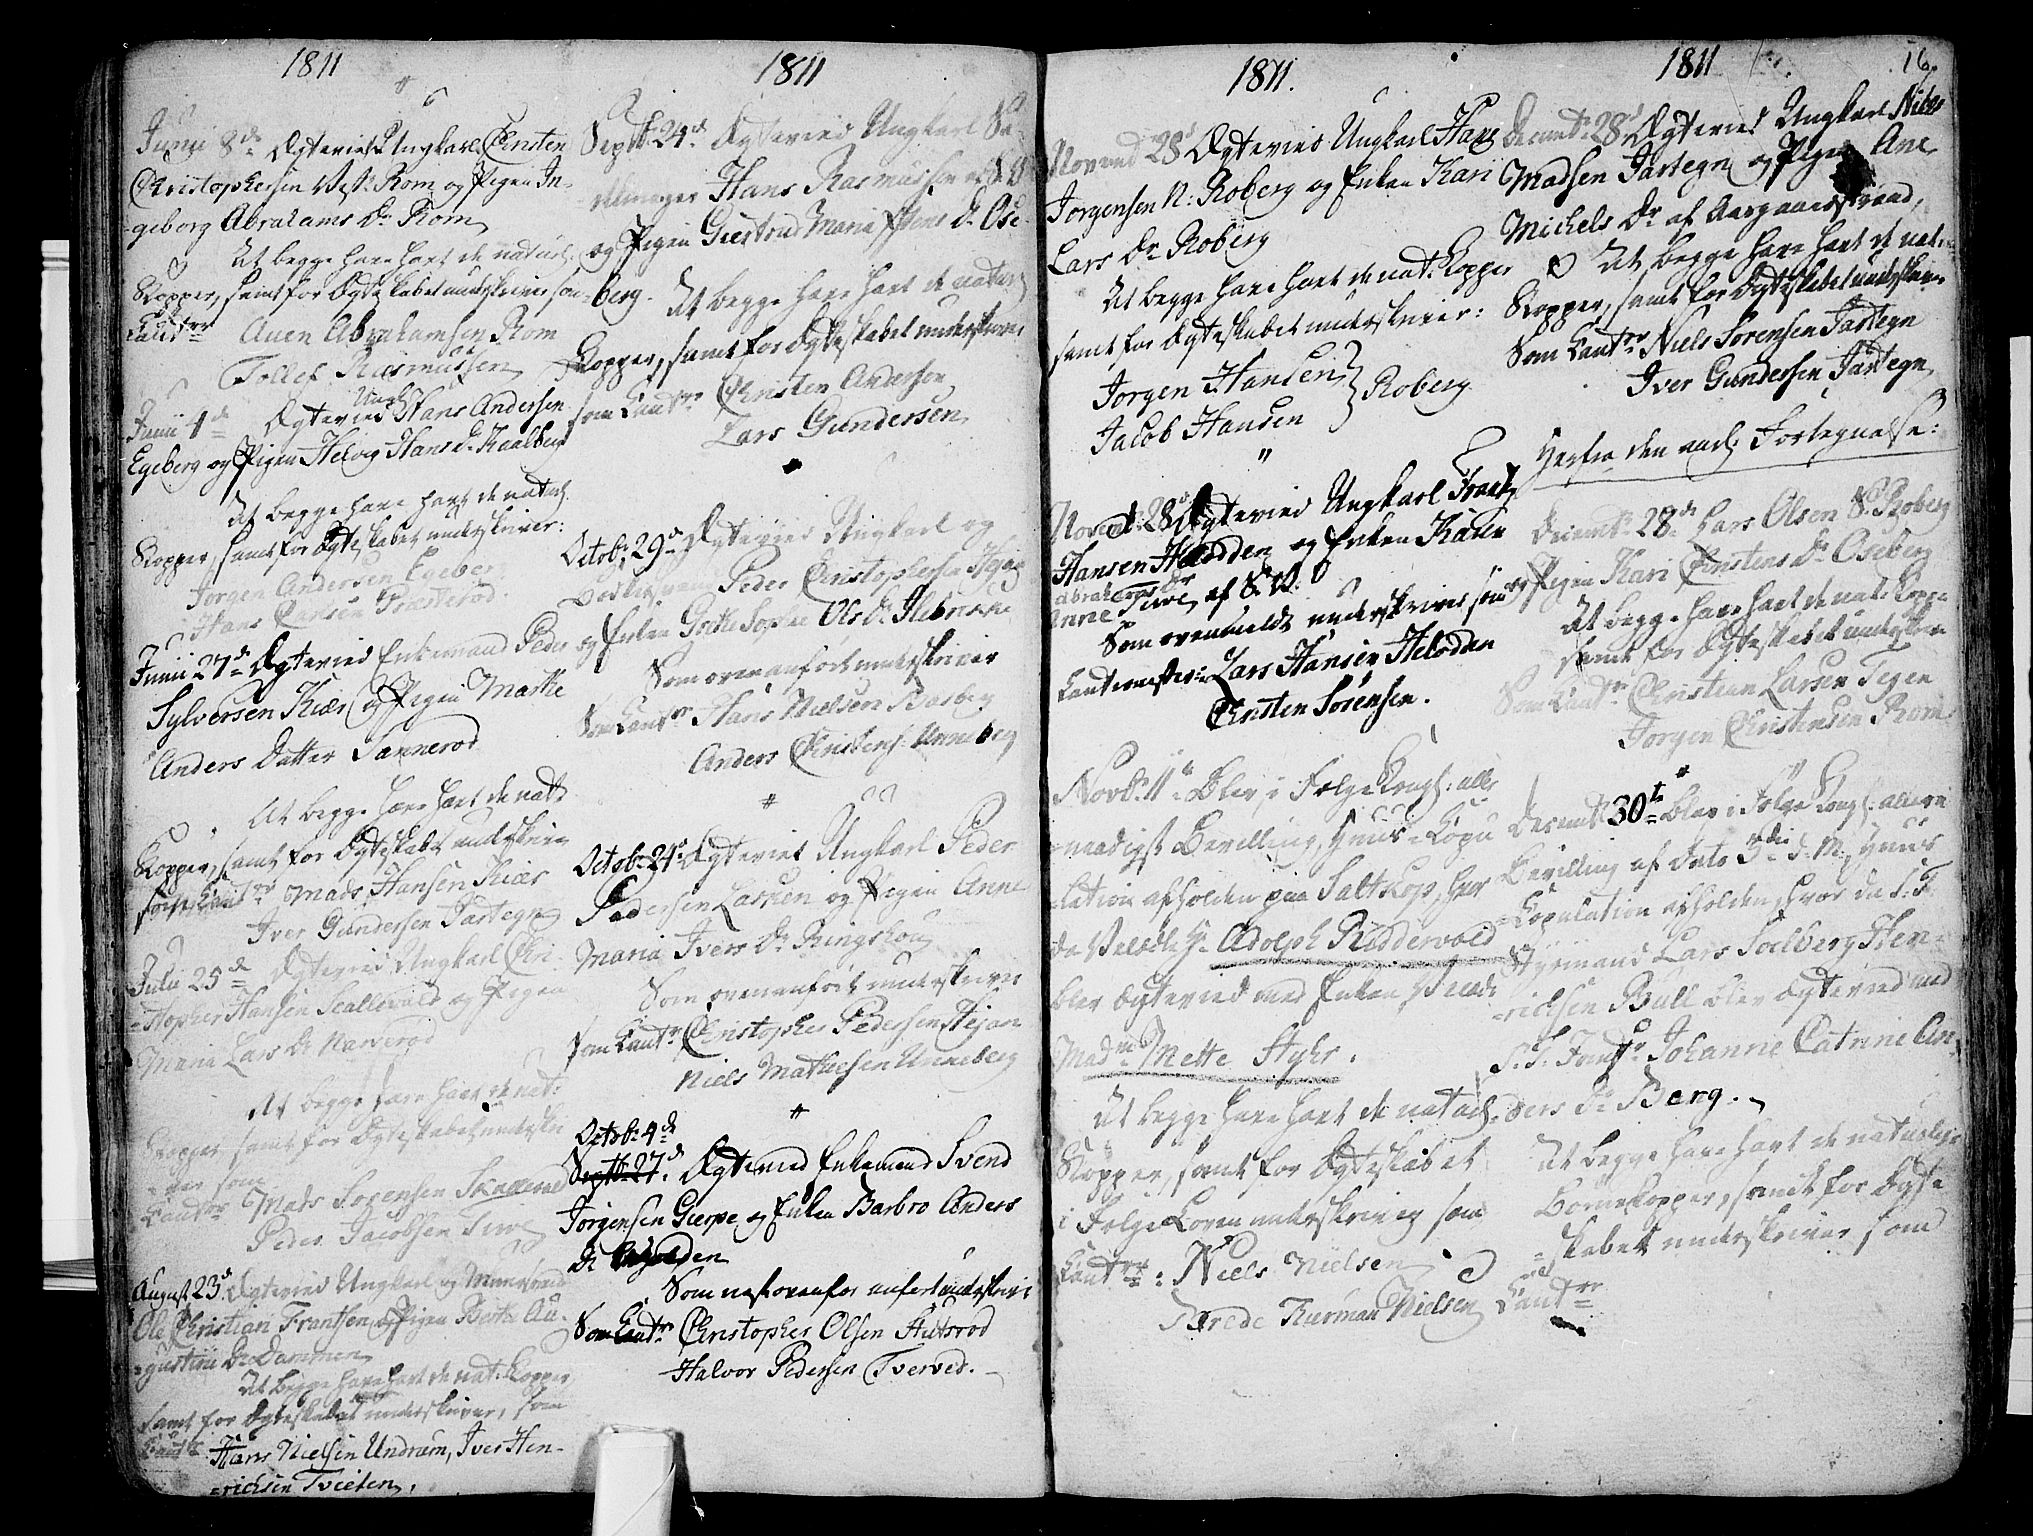 1811
Junii 8de Ægteviet Ungkarl Christen
Christophersen Vest. Rom og Pigen In-
geborg Abrahams Dr Rom
At begge have havt de naturl.
Kopper, samt for Ægteskabet underskriver som
Cautrr Auen Abrahamsen Rom
Tollef Rasmussen
Junii 4de Ægteviet Ungk. Hans Andersen
Egeberg og Pigen Helvig Hans Dr Kaalberg
At begge have havt de naturl.
Kopper, samt for Ægteskabet underskriver:
Jorgen Andersen Egeberg
Hans Larsen Træsterod
Junii 27de Ægteviet Enkemand Peder
Sylversen Kiær og Pigen Marthe
Anders Datter Sannerod
At begge have havt de natl
Kopper, samt for Ægteskabet underskriver
som Cautrr Mads Hansen Kiær
Iver Gundersen Jartegn
Julii 25de Ægteviet Ungkarl Chri-
stopher Hansen Scallevold og Pigen
Maria Lars Dr Narverod
At begge have havt de nat:
Kopper samt for Ægteskabet underskri-
ver som
Cautrr Mads Sorensen Sknaterud
Peder Jacobsen Tuve
August 23de Ægteviet Ungkarl og
Ole Christian Frantsen, og Pigen Berthe Au-
gustini Dr Dammen
At begge have havt de nat. Kopper
samt for Ægteskabet underskriver, som
Cautrr Hans Nielsen Undrum, Iver Hen-
richsen Tvieten.
1811
Septb. 24de Ægteviet Ungkarl
Hans Rasmussen
og Pigen Giertrud Maria Dr Ose-
berg. At begge have havt de naturl
Kopper, samt for Ægteskabet underskriver
som Cautrr Christen Andersen
Lars Gundersen
Octobr 29de Ægteviet Ungkarl og
Peder Christophersen
og Enken Grethe Sophie Ols Dr
Som ovenanfört underskriver
Som Cautrr Hans Nielsen Basberg
Anders Christens. Unneberg
Octobr 24de Ægteviet Ungkarl Peder
Pedersen Lasken og Pigen Anne
Maria Ivers Dr Ringshoug
Som ovenanfört underskriver
som Cautrr Christopher Pedersen Stejan
Niels Mathiesen Unneberg
Octobr 4de
Septbr 27de Ægteviet Enkemand Svend
Jorgensen Gierpe, og Enken Barbro Anders
Dr
Som nest ovenfor anfört underskriver
Som Cautrr Christopher Olsen Stutsrod
Halvor Pedersen Tverved.
1811.
Novemb 28de Ægteviet Ungkarl Hans
Jorgensen N: Roberg og Enken Kari
Lars Dr Roberg
At begge have havt de nat. Kopper
samt for Ægteskabet underskriver:
Jorgen Hansen
Jacob Hansen } Roberg
Novemb. 28de Ægteviet Ungkarl Frantz
Hansen Heladden og Enken Karen
Abrahams Dr
Anne Tuve af S. V.
Som ovenmeldt underskriver som
Cautionister: Lars Hansen Heladden
Christen Sorensen.
Novbr 11te Blev i Folge Kongl: aller-
naadigst Bevilling, Huus-Copu-
lation afholden paa Saltkop, her
da Velædle Hr Adolph Ridderwold
blev Ægteviet med Enken Velædle
Madm Mette Styhr.
At begge have havt de naturl.
Kopper, samt for Ægteskabet
i Folge Loven underskriver som
Cautrr: Niels Nielsen
Brede Thurman Nielsen
1811
16.
Decembr 28de Ægteviet Ungkarl Niels
Madsen Jartegn og Pigen Ane
Michels Dr af Aasgaarstrand,
At begge have havt de nat.
Kopper, samt for Ægteskabet underskriver
Som Cautrr Niels Sorensen Jartegn
Iver Gundersen Jartegn
Herfra den aarl: Fortegnelse:
Decembr 28de Lars Olsen S. Roberg
og Pigen Kari Christens Dr Oseberg
At begge have havt de nat. Kopper
samt for Ægteskabet underskriver
Som Cautrr Christian Larsen Tegen
Jorgen Christensen Rom
Decembr 30te blev i Folge Kongl: allern:
Bevilling af Dato 3die d. M., Huus-
Copulation afholden, hvor da S. T.
Styrmand Lars Soelberg Hen-
richsen Bull blev Ægteviet med
S. T. Jomfr Johanne Catrine An-
ders Dr Berg.
At begge have havt de naturlige
Bornekopper, samt for Ægte-
skabet underskriver som
Cautrr